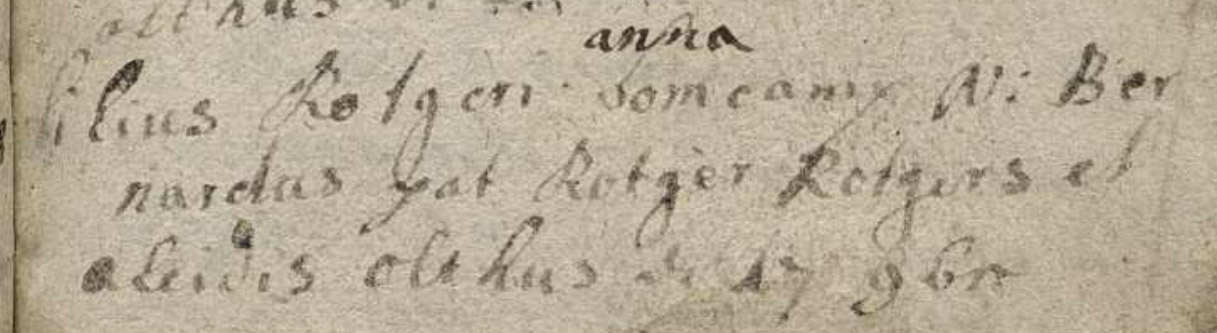 olthus
anna
filius Rotgeri Bomcamp N: Ber
nardus pat Rotger Rotgers et
aleidis olthus d: 17 9br